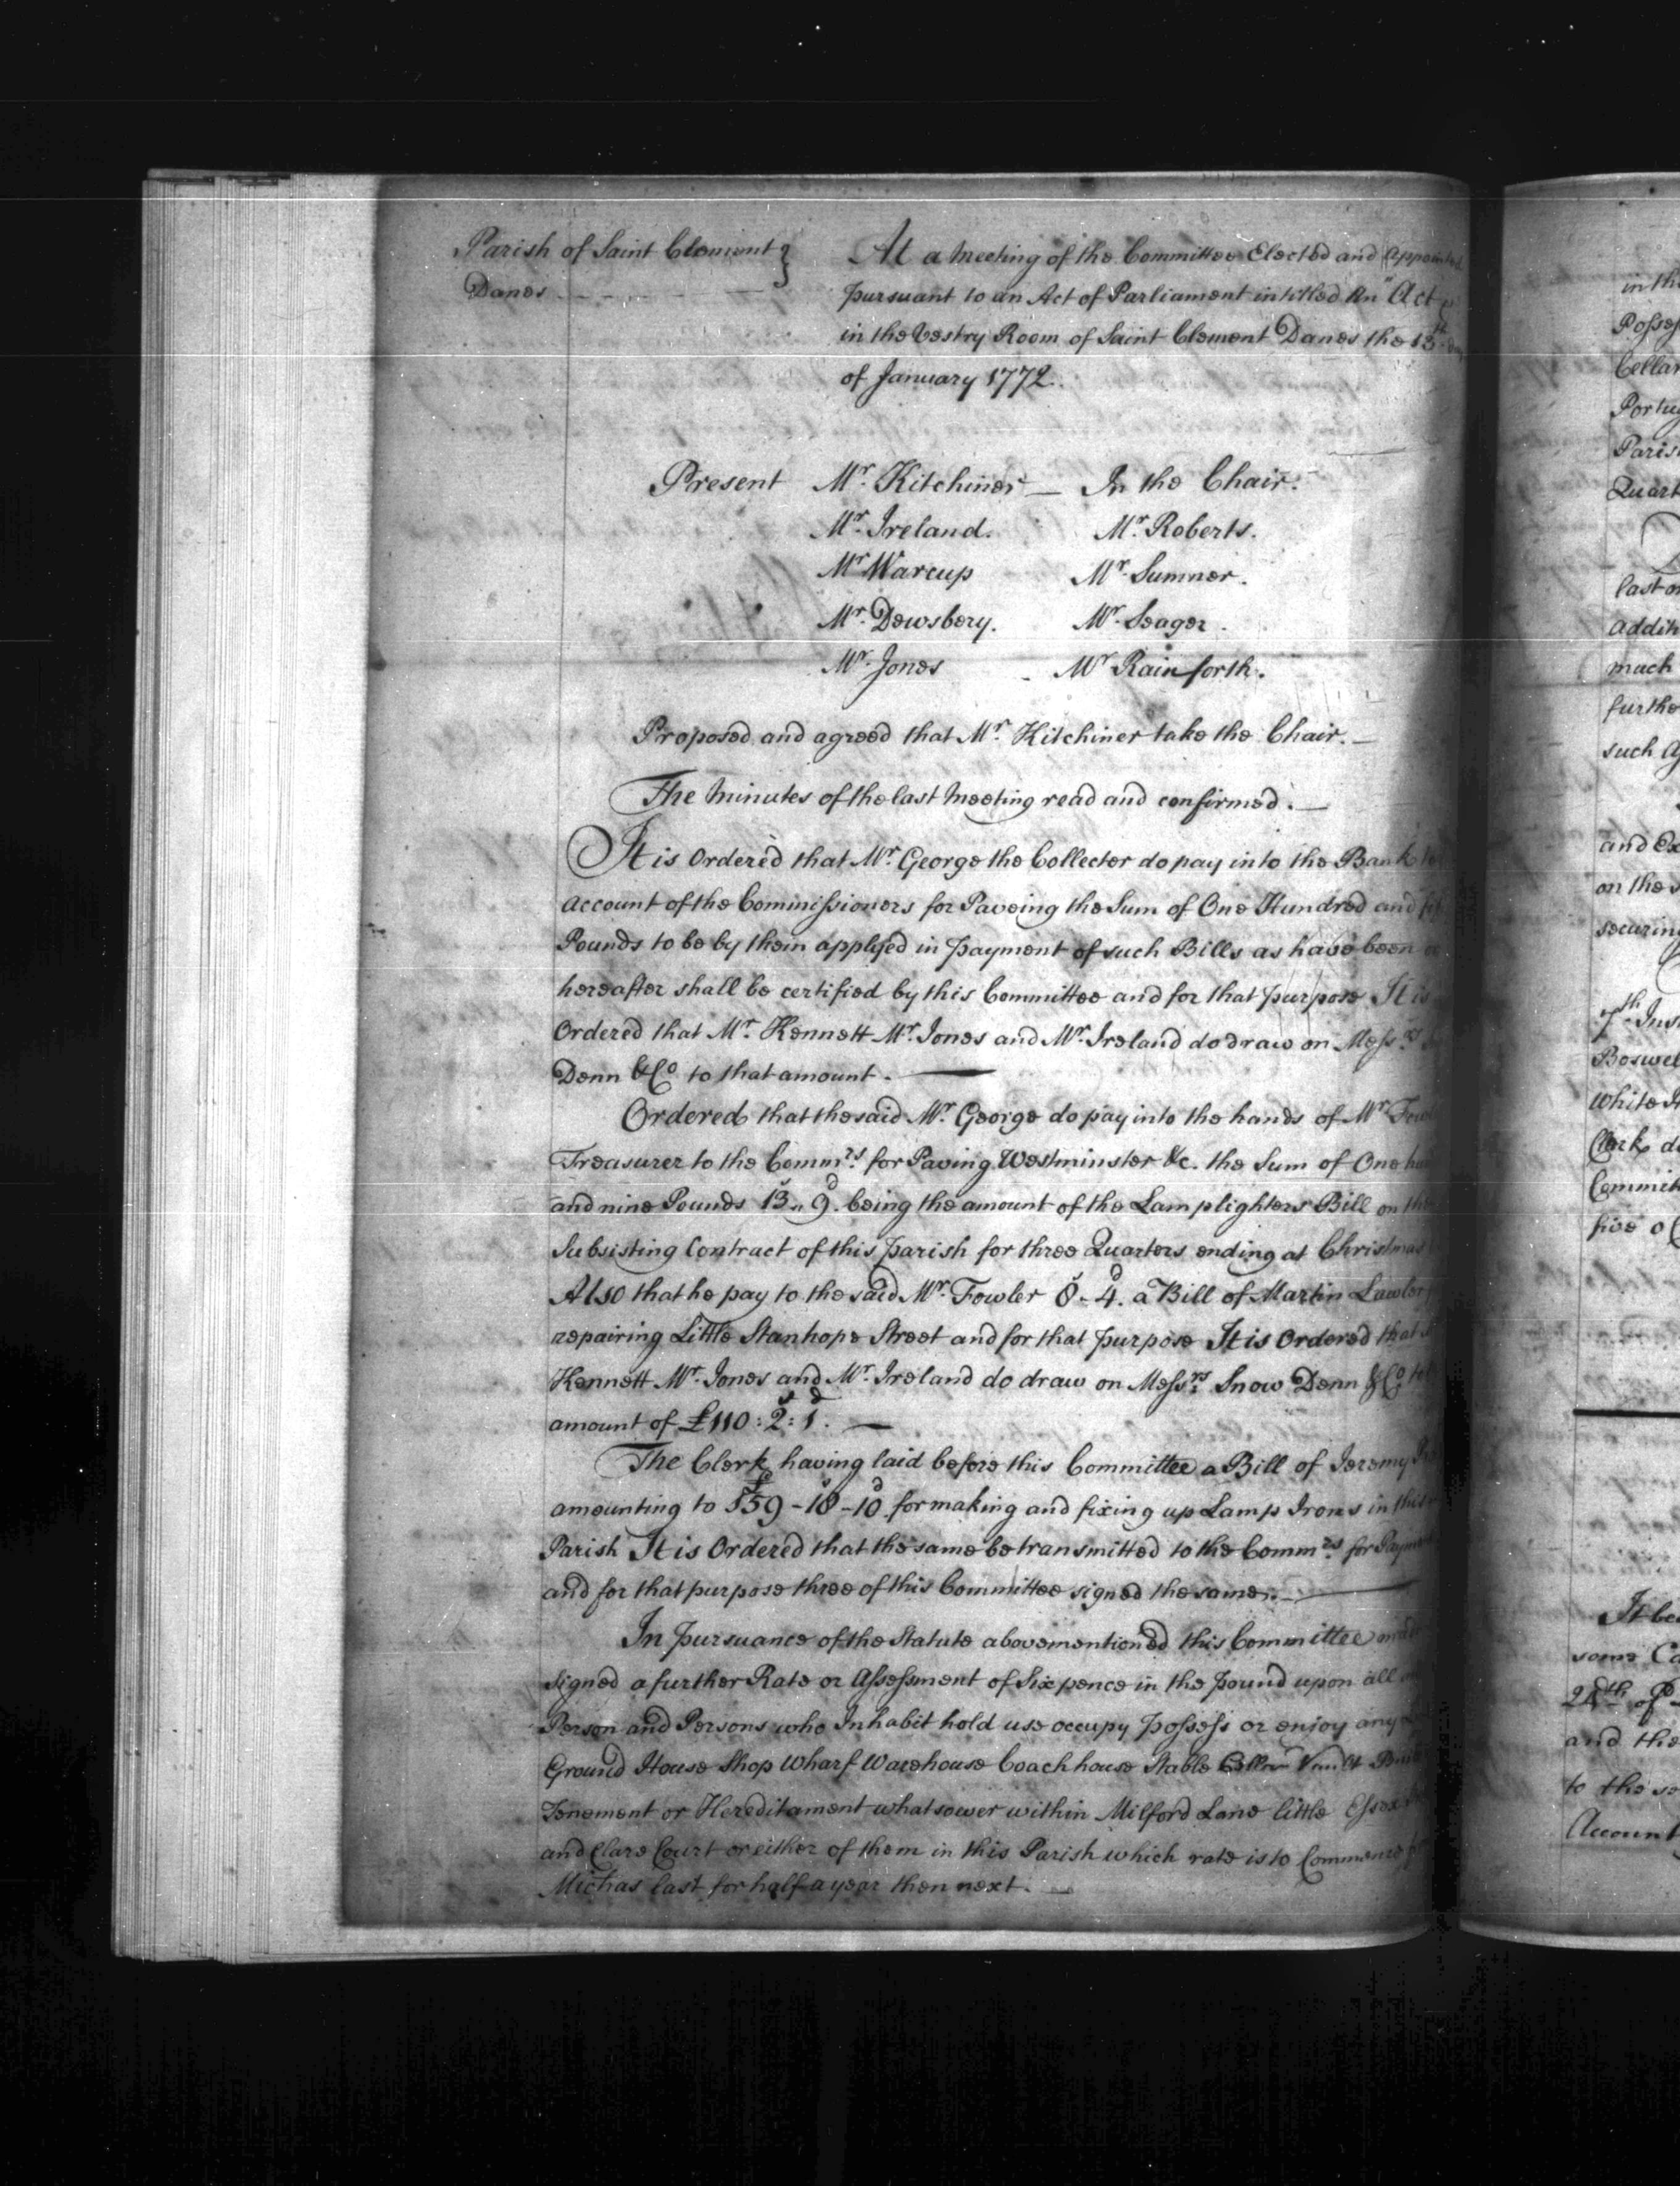 Parish of Saint Clement }
Danes
At a Meeting of the Committee Elected and Appointed
pursuant to an Act of Parliament intitled An "Act
in the Vestry Room of Saint Clement Danes the 13th
of January 1772.
Present Mr. Kitchiner — In the Chair.
Mr. Ireland. Mr. Roberts.
Mr. Warcup Mr. Sumner.
Mr. Dewsbery. Mr. Seager.
Mr. Jones Mr. Rainforth.
Proposed and agreed that Mr. Kitchiner take the Chair. —
The Minutes of the last Meeting read and confirmed. —
It is Ordered that Mr. George the Collector do pay into the Bank
account of the Commissioners for Paveing the Sum of One Hundred and
Pounds to be by them applyed in payment of such Bills as have been
hereafter shall be certified by this Committee and for that purpose It is
Ordered that Mr. Kennett Mr. Jones and Mr. Ireland do draw on Messrs.
Denn & Co. to that amount. —
Ordered that the said Mr. George do pay into the hands of Mr.
Treasurer to the Commrs. for Paving Westminster &c. the Sum of One
and nine Pounds 13s. 9d. being the amount of the Lamplighters Bill on
Subsisting Contract of this parish for three Quarters ending at Christmas
Also that he pay to the said Mr. Fowler 8s - 4d. a Bill of Martin Lawler
repairing Little Stanhope Street and for that purpose It is Ordered that
Kennett Mr. Jones and Mr. Ireland do draw on Messrs. Snow Denn & Co.
amount of £110: 2s: 1d. —
The Clerk having laid before this Committee a Bill of Jeremy
amounting to £59 - 18s - 10d for making and fixing up Lamp Irons in this
Parish It is Ordered that the same be transmitted to the Commrs. for Payment
and for that purpose three of this Committee signed the same. —
In pursuance of the Statute abovementioned this Committee
signed a further Rate or Assessment of Six pence in the pound upon all
Person and Persons who Inhabit hold use occupy possess or enjoy any
Ground House Shop Wharf Warehouse Coach house Stable Cellar Vault
Tenement or Hereditament whatsower within Milford Lane little Essex
and Clare Court or either of them in this Parish which rate is to Commence
Michas last for half a year then next. —
in th
Possess
Cellar
Portug
Paris
Quart
last
addit
much
furthe
such
and
on the
securin
7th Ins
Boswel
white
Clerk
Commit
five o
It be
some
24th of
and the
to the
Account